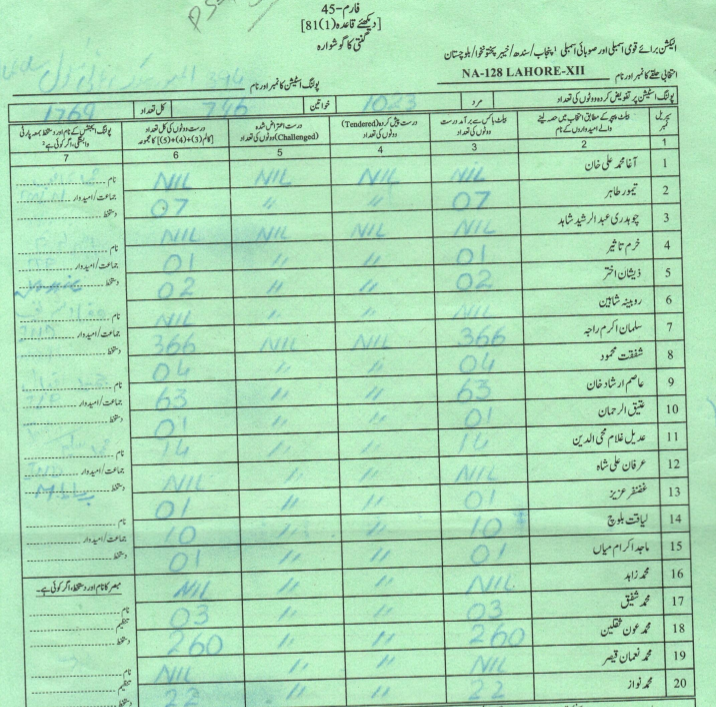 فارم-45
[دیکھئے قاعدہ(1)81]
گنتی کا گوشوارہ
الیکشن برائے قومی اسمبلی اور صوبائی اسمبلی پنجاب/سندھ/خیبر پختونخوا/بلوچستان
انتخابی حلقے کا نمبر اور نام NA-128 LAHORE-XII
پولنگ اسٹیشن کا نمبر اور نام
پولنگ اسٹیشن پر تفویض کردہ ووٹوں کی تعداد مرد 1023 خواتین 746 کل تعداد 1769
سیریل نمبر | بیلٹ پیپر کے مطابق انتخاب میں حصہ لینے والے امیدواروں کے نام | بیلٹ باکس سے برآمد درست ووٹوں کی تعداد | درست پیش کردہ (Tendered) ووٹوں کی تعداد | درست اعتراض شدہ (Challenged) ووٹوں کی تعداد | درست ووٹوں کی کل تعداد [کالم (3)+(4)+(5)] کا مجموعہ | پولنگ ایجنٹس کے نام اور دستخط بمعہ پارٹی وابستگی، اگر کوئی ہے؛
1 | 2 | 3 | 4 | 5 | 6 | 7
1 آغا محمد علی خان NIL NIL NIL NIL نام
2 تیمور طاہر 07 〃 〃 07 جماعت/امیدوار
3 چوہدری عبدالرشید شاہد NIL NIL NIL NIL دستخط
4 خرم تاثیر 01 〃 〃 01 نام
5 ذیشان اختر 02 〃 〃 02 جماعت/امیدوار
6 روبینہ شاہین NIL 〃 〃 NIL دستخط
7 سلمان اکرم راجہ 366 NIL NIL 366 نام
8 شفقت محمود 04 〃 〃 04 جماعت/امیدوار
9 عاصم ارشاد خان 63 〃 〃 63 دستخط
10 عتیق الرحمان 01 〃 〃 01 نام
11 عدیل غلام محی الدین 14 〃 〃 14 جماعت/امیدوار
12 عرفان علی شاہ NIL 〃 〃 NIL دستخط
13 غضنفر عزیز 01 〃 〃 01 نام
14 لیاقت بلوچ 10 〃 〃 10 جماعت/امیدوار
15 ماجد اکرام میاں 01 〃 〃 01 دستخط
16 محمد زاہد NIL 〃 〃 NIL مبصر کا نام اور دستخط، اگر کوئی ہے۔
17 محمد شفیق 03 〃 〃 03 نام
18 محمد عون ثقلین 260 〃 〃 260 تنظیم دستخط
19 محمد نعمان قیصر NIL 〃 〃 NIL نام
20 محمد نواز 22 〃 〃 22 تنظیم دستخط